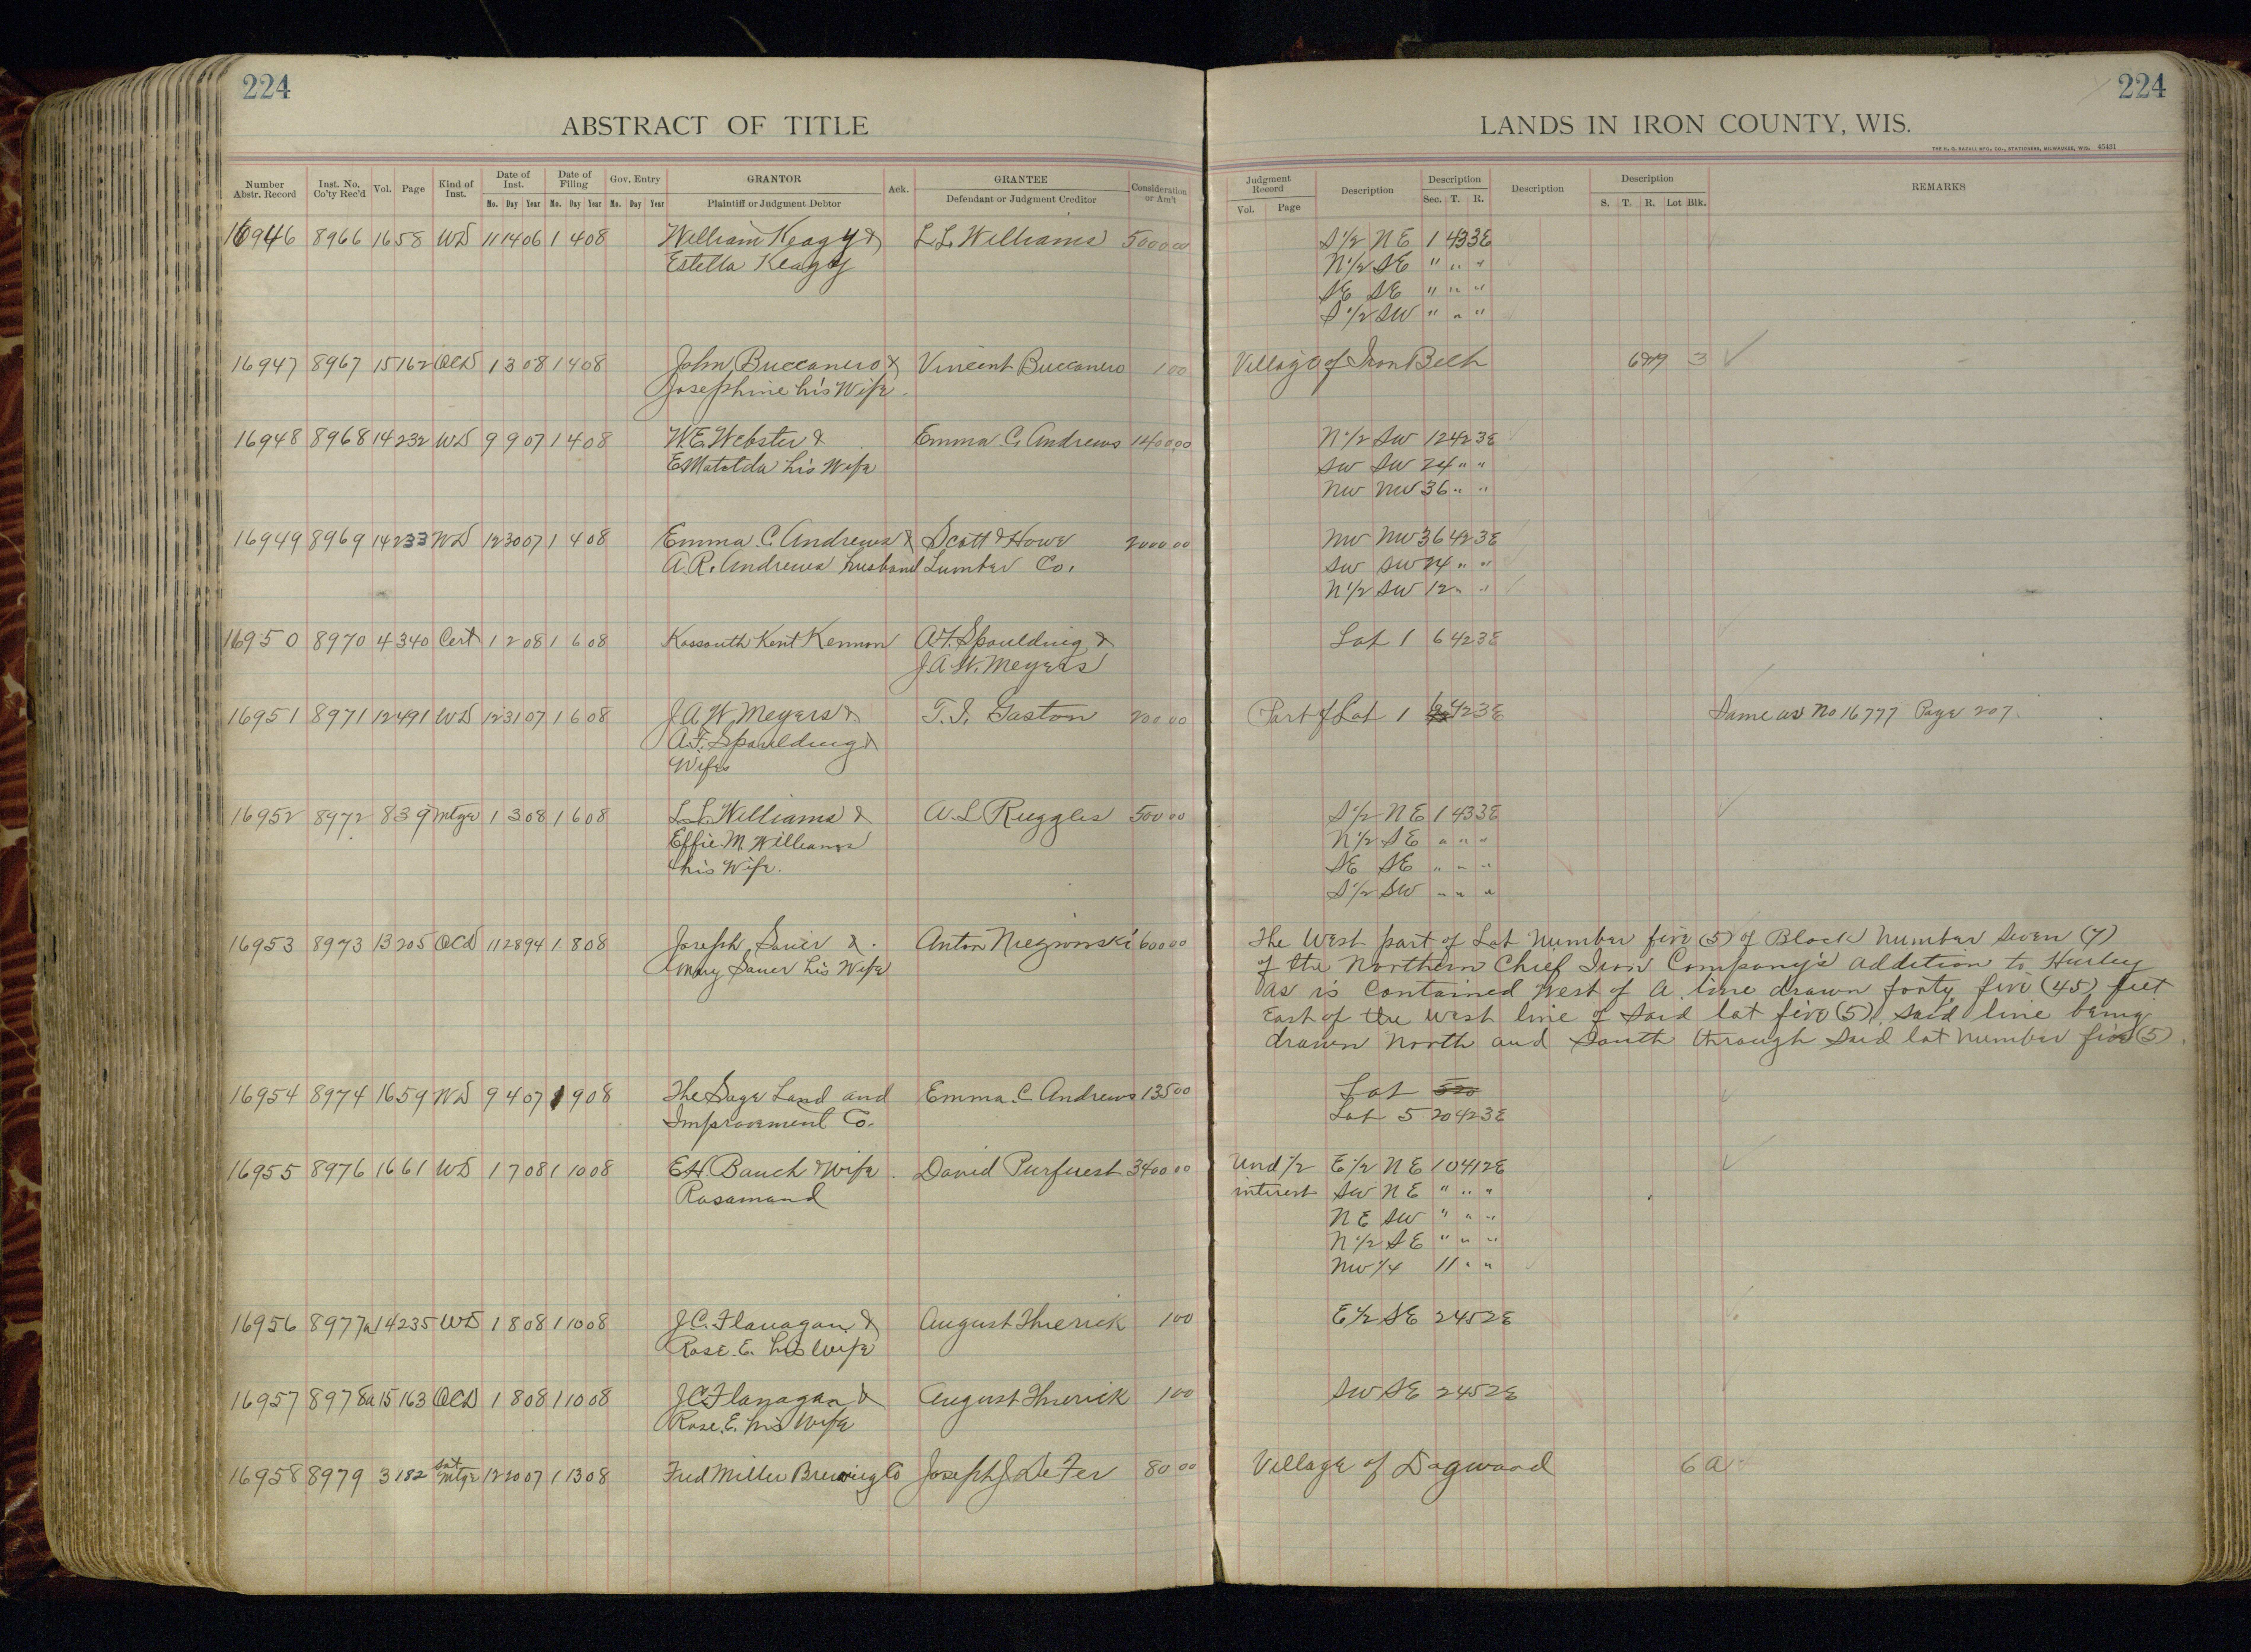 224
ABSTRACT OF TITLE
Number Abstr. Record Inst. No. Co'ty Rec'd Vol. Page Kind of Inst. Date of Inst. Date of Filing Gov. Entry GRANTOR Ack. GRANTEE Consideration or Am't
Mo. Day Year Mo. Day Year Mo. Day Year Plaintiff or Judgment Debtor Defendant or Judgment Creditor
16946 8966 16 58 WD 11 14 06 1 4 08 William Keagy & L L Williams 5000 00
Estella Keagy
16947 8967 15 162 QCD 1 3 08 1 4 08 John Buccanero & Vincent Buccanero 1 00
Josephine his Wife.
16948 8968 14 232 WD 9 9 07 1 4 08 W.E. Webster & Emma C. Andrews 1400 00
E Matilda his Wife
16949 8969 14 233 WD 12 30 07 1 4 08 Emma C. Andrews & Scott & Howe 2000 00
A.R. Andrews husband Lumber Co.
16950 8970 4 340 Cert 1 2 08 1 6 08 Kossouth Kent Kennon A.F. Spaulding &
J.A.W. Meyers
16951 8971 12 491 WD 12 31 07 1 6 08 J A W Meyers & T. I. Gaston 200 00
A.F. Spaulding &
Wifes
16952 8972 8 39 Mtge 1 3 08 1 6 08 L.L. Williams & A. L Ruggles 500 00
Effie M. Williams
his Wife.
16953 8973 13 205 QCD 11 28 94 1 8 08 Joseph Sauer & Anton 600 00
Mary Sauer his Wife
16954 8974 16 59 WD 9 4 07 1 9 08 The Sage Land and Emma C Andrews 135 00
Improvement Co.
16955 8976 16 61 WD 1 7 08 1 10 08 E H Bauch & Wife David Purfuest 3400 00
Rosamand
16956 8977a 14 235 WD 1 8 08 1 10 08 J.C. Flanagan & August 1 00
Rose. E. his Wife
16957 8978a 15 163 QCD 1 8 08 1 10 08 J.C. Flanagan & August 1 00
Rose. E. his Wife
16958 8979 3 182 Sat Mtge 12 20 07 1 13 08 Fred Miller Brewing Co Joseph J. DeFer 80 00
224
LANDS IN IRON COUNTY, WIS.
THE H. G. RAZALL MFG. CO., STATIONERS, MILWAUKEE, WIS. 45431
Judgment Record Description Description Description Description REMARKS
Vol. Page Sec. T. R. S. T. R. Lot Blk.
S 1/2 NE 1 43 3E
N 1/2 SE " " "
SE SE " " "
S 1/2 SW " " "
Village of Iron Belt 6&7 3
N 1/2 SW 12 42 3E
SW SW 24 " "
NW NW 36 " "
NW NW 36 42 3E
SW SW 24 " "
N 1/2 SW 12 " "
Lot 1 6 42 3E
Part of Lot 1 6 42 3E Same as No 16777 Page 207.
S 1/2 NE 1 43 3E
N 1/2 SE " " "
SE SE " " "
S 1/2 SW " " "
The West part of Lot Number five (5) of Block Number Seven (7)
of the Northern Chief Iron Company's addition to Hurley
as is Contained West of a line drawn forty five (45) feet
East of the West line of Said lot five (5), said line being
drawn North and South through Said lot Number five (5).
Lot 5 20
Lot 5 20 42 3E
Und 1/2 E 1/2 NE 10 41 2E
interest SW NE " " "
NE SW " " "
N 1/2 SE " " "
NW 1/4 11 " "
E 1/2 SE 24 5 2E
SW SE 24 5 2E
Village of Dogwood 6 A